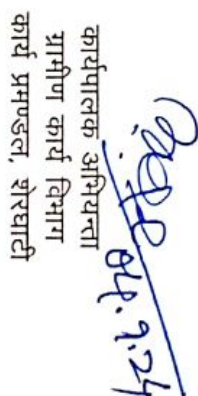 04.9.24
कार्यपालक अभियन्ता
ग्रामीण कार्य विभाग
कार्य प्रमण्डल, शेरघाटी